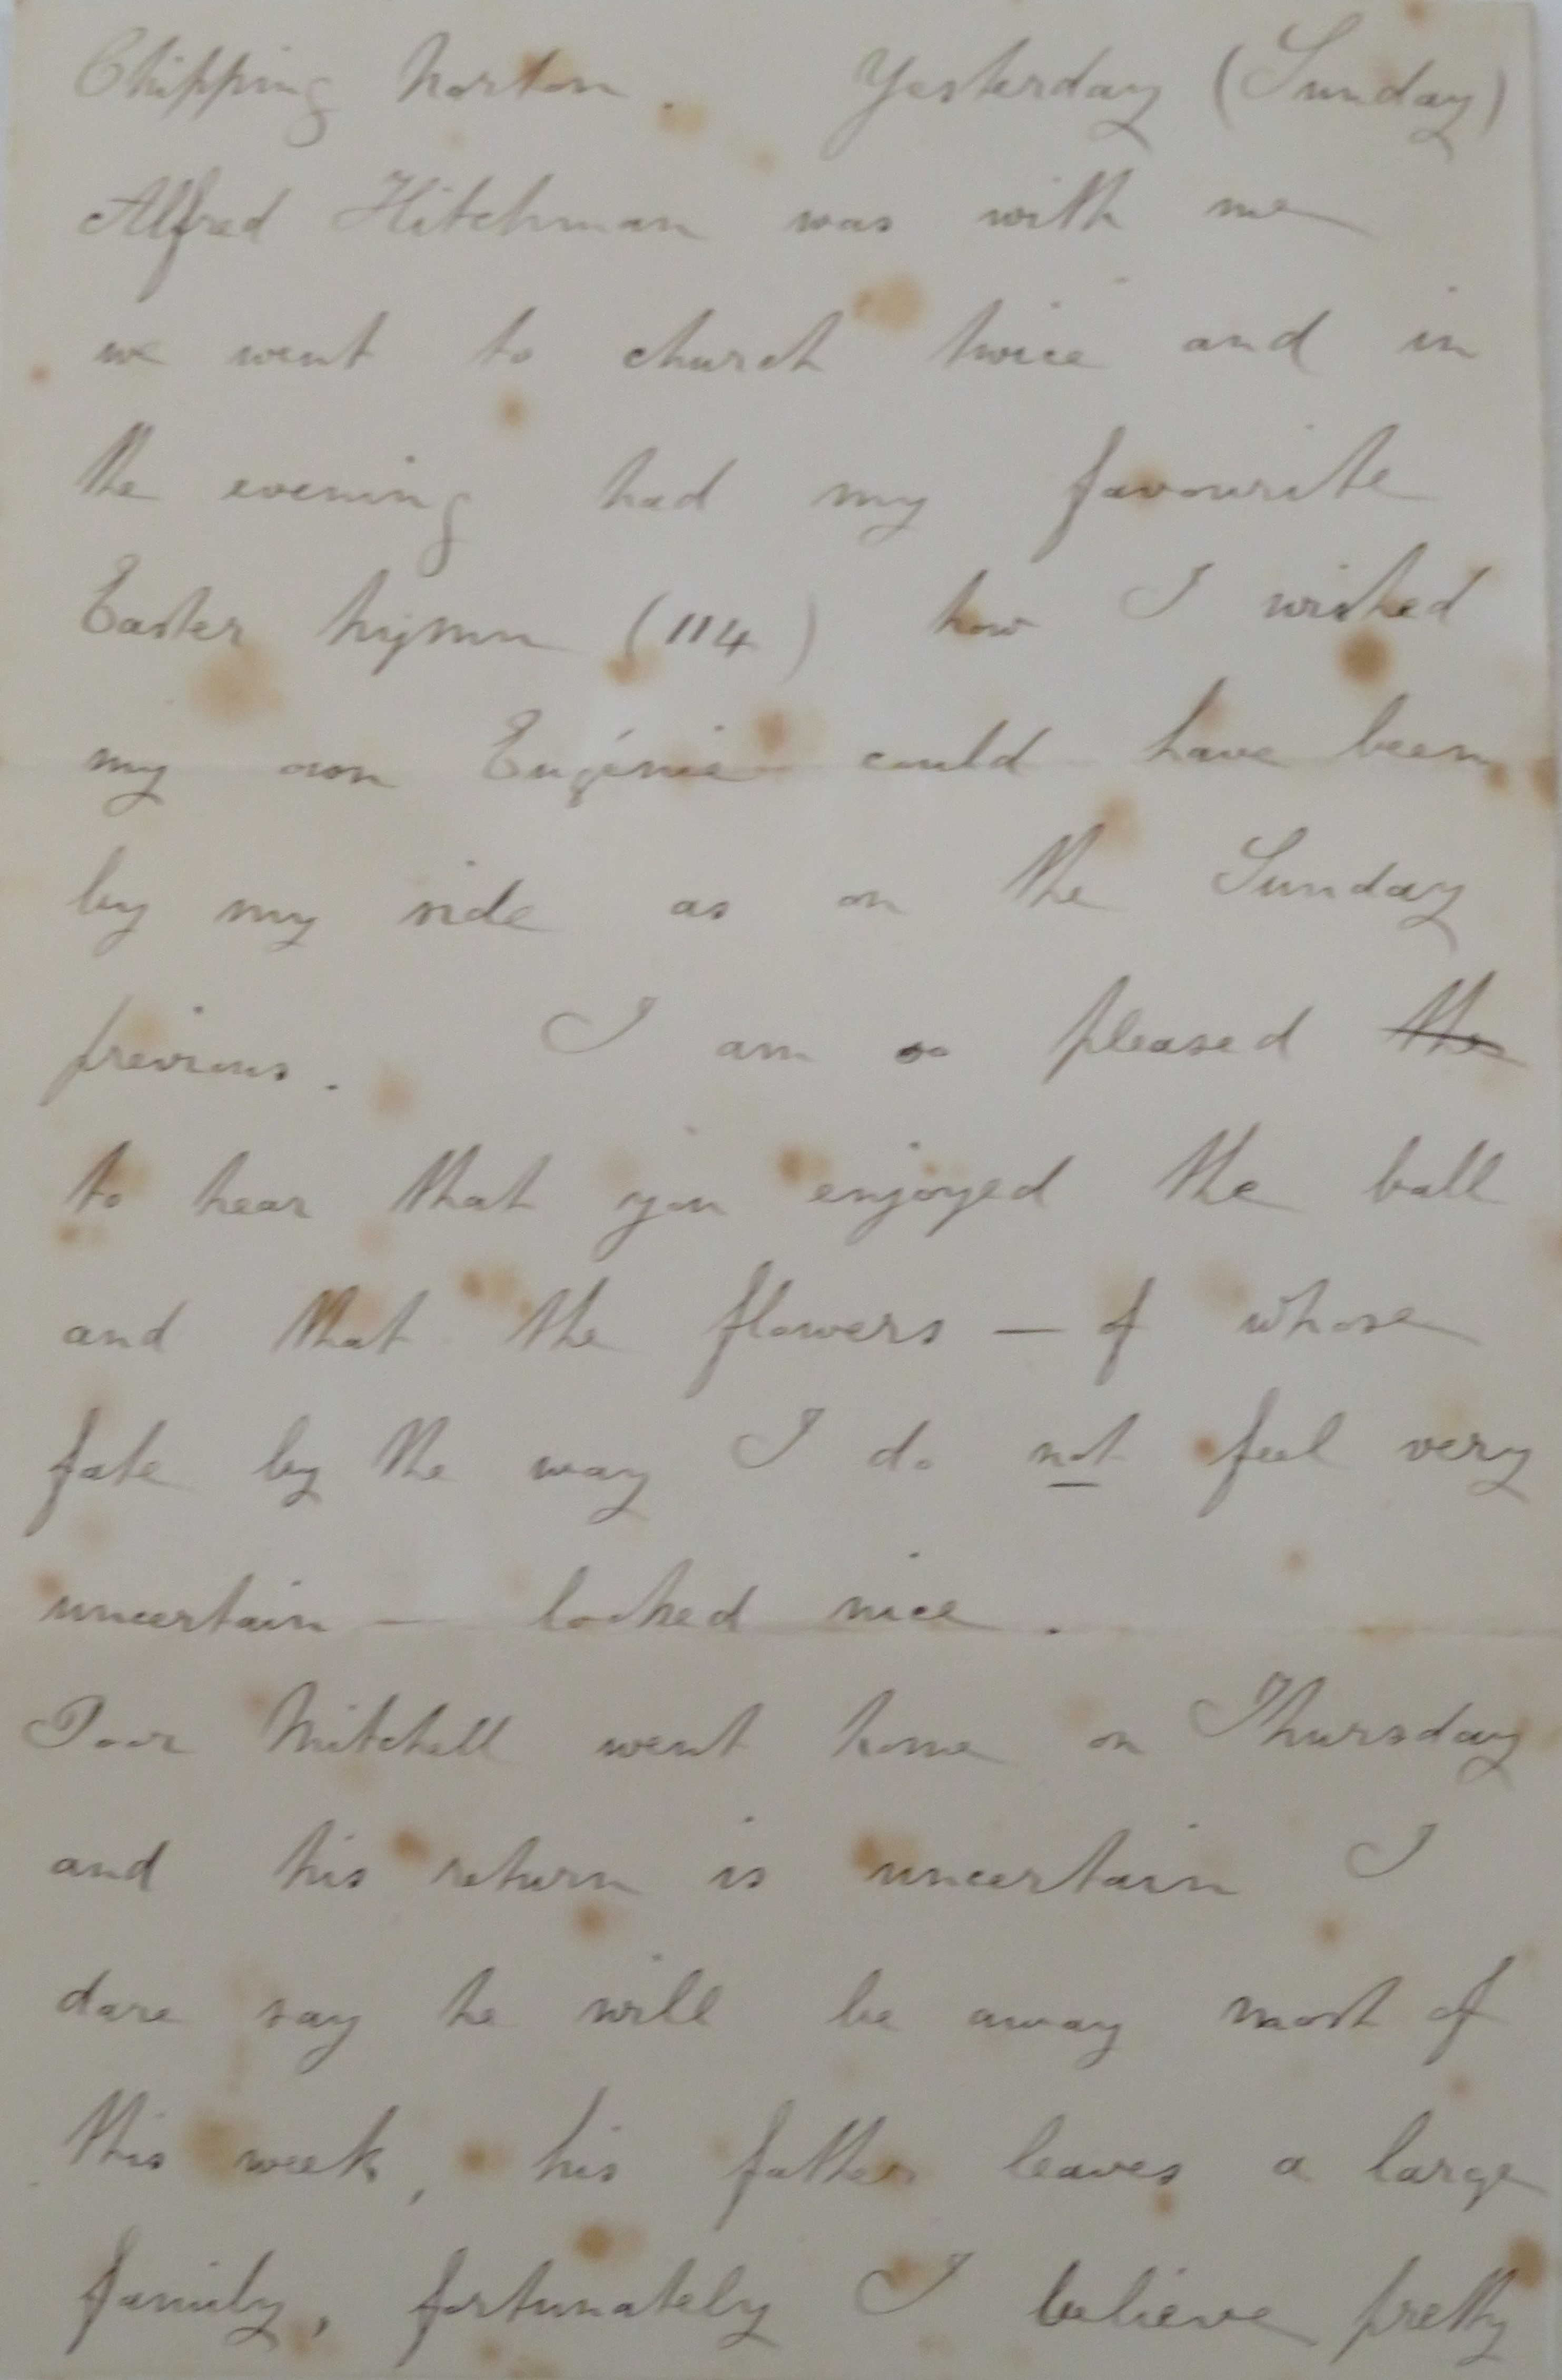 Chipping Norton. Yesterday (Sunday)
Alfred Hitchman was with me
we went to church twice and in
the evening had my favourite
Easter hymn (114) how I wished
my own Eugénie could have been
by my side as on the Sunday
previous. I am so pleased the
to hear that you enjoyed the ball
and that the flowers — of whose
fate by the way I do not feel very
uncertain — looked nice.
Poor Mitchell went home on Thursday
and his return is uncertain I
dare say he will be away most of
this week, his father leaves a large
family, fortunately I believe pretty